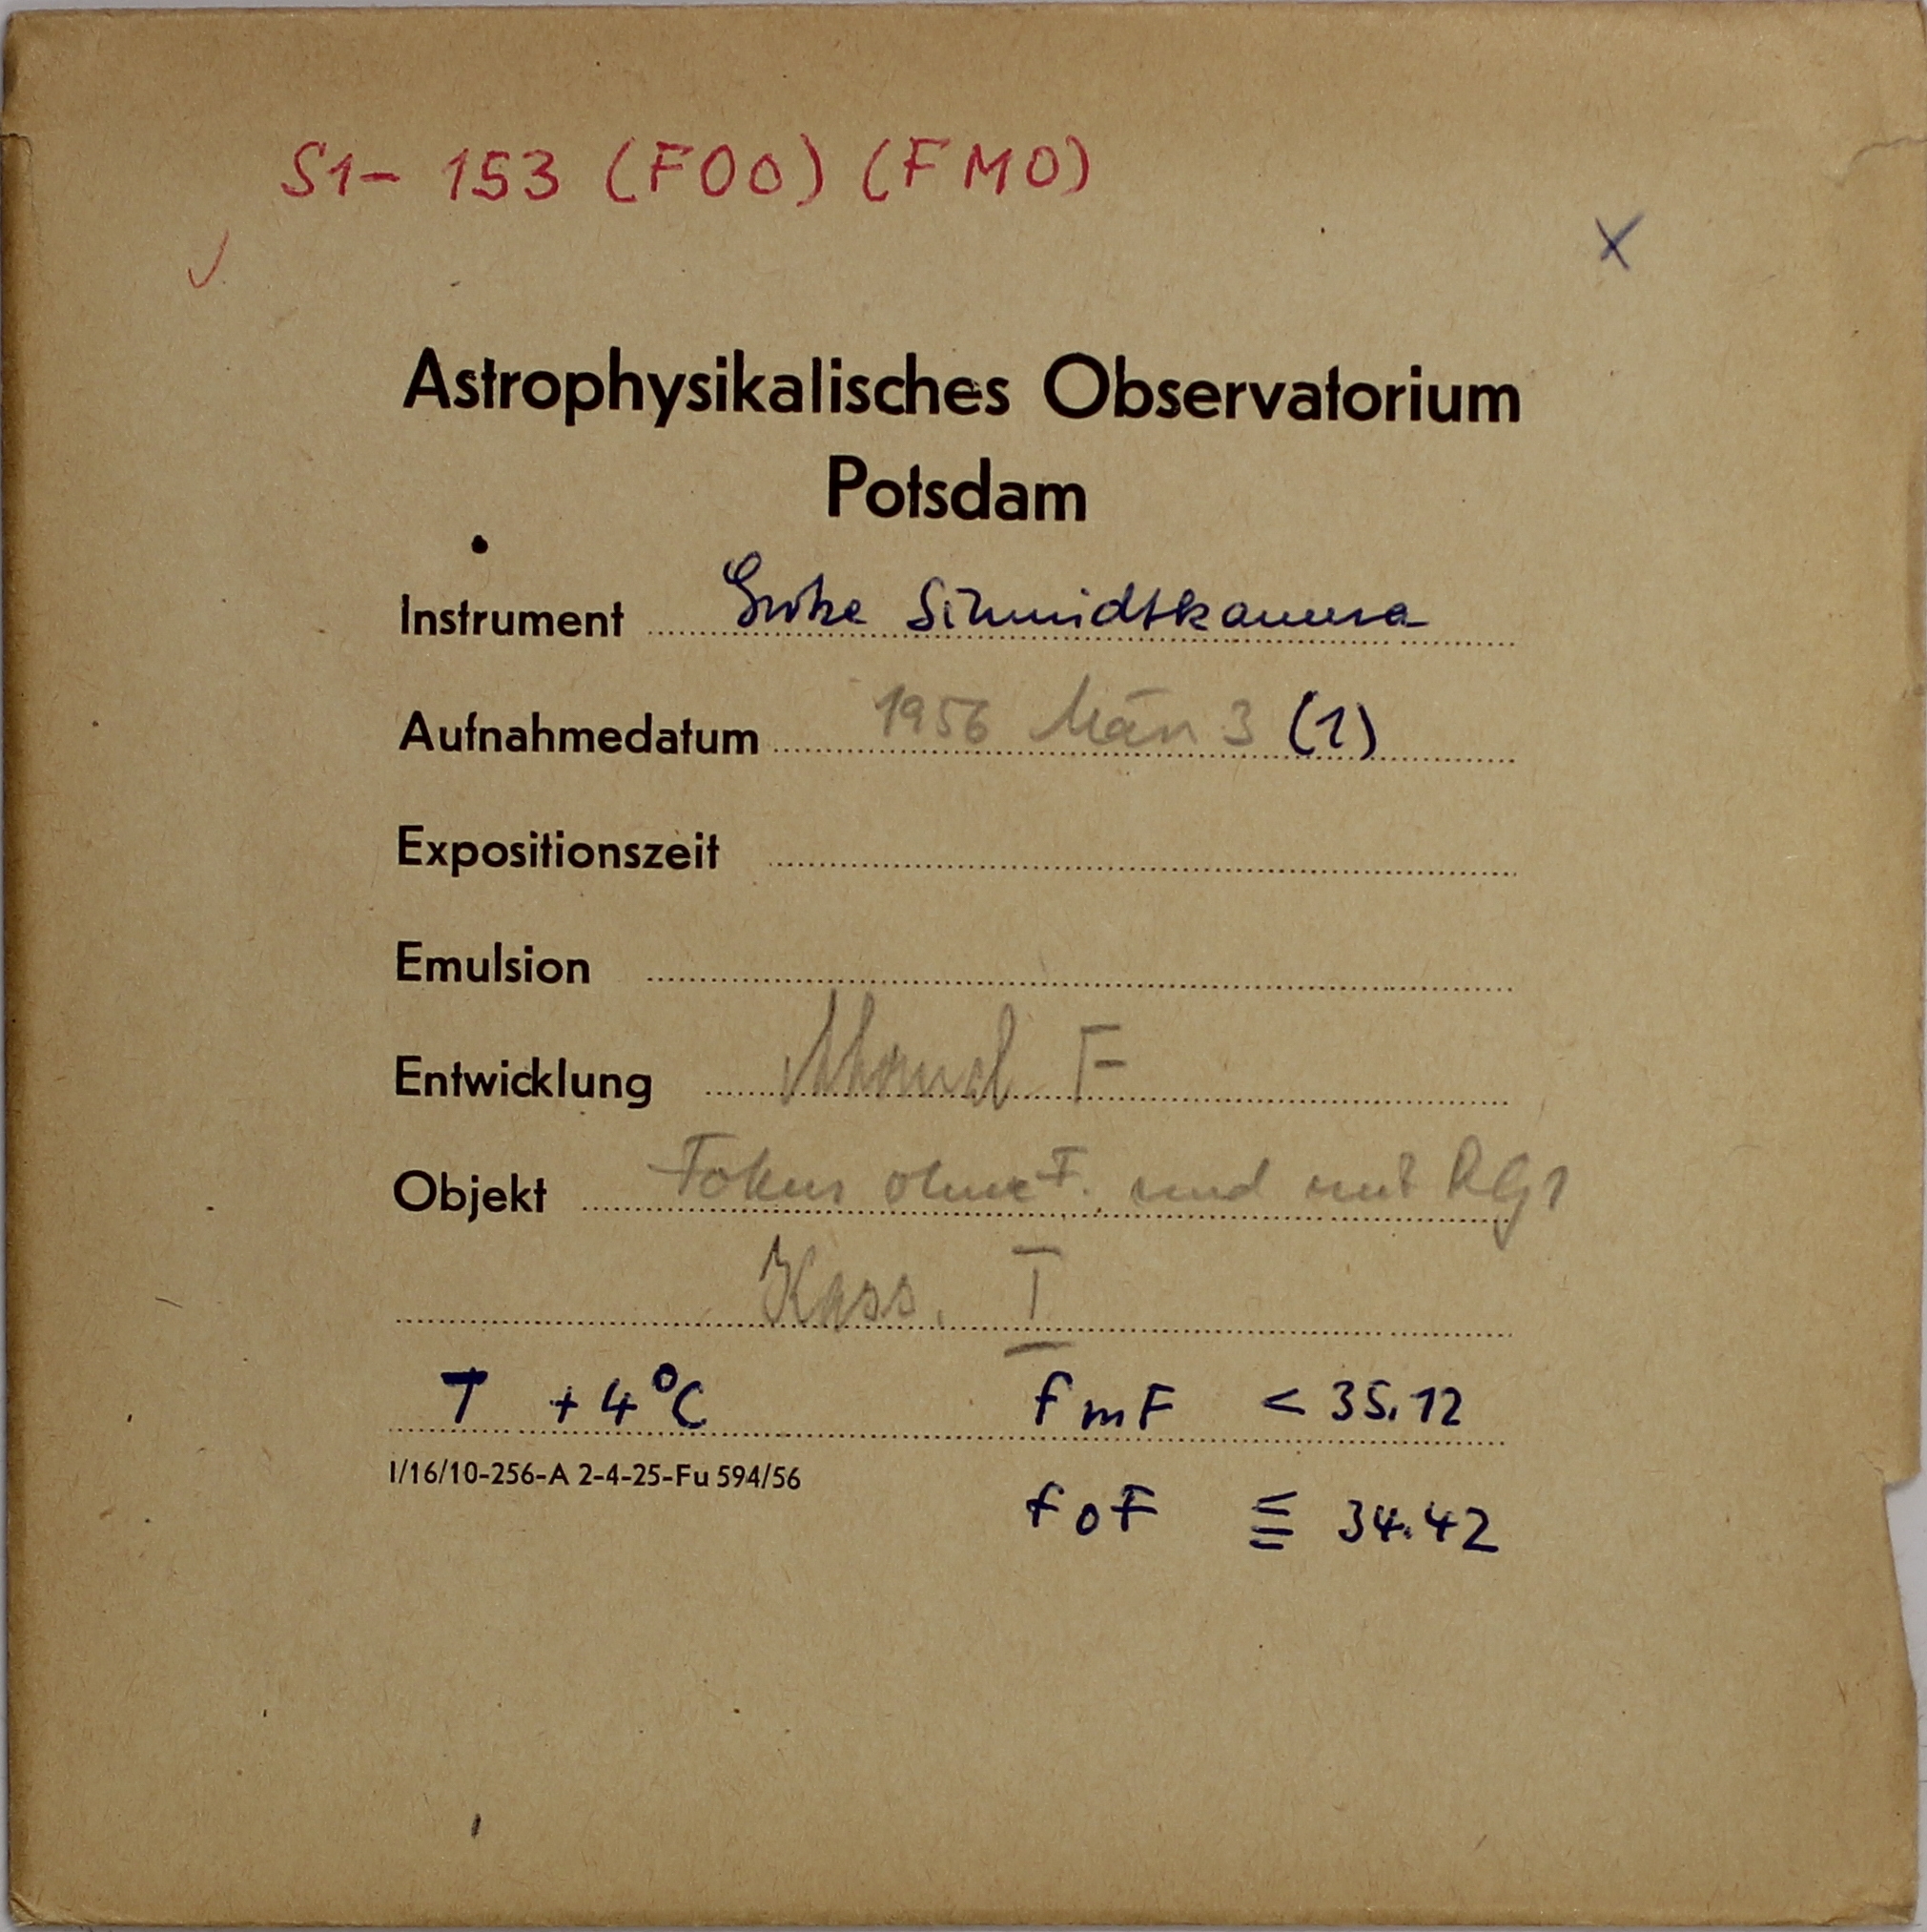 S1- 153 (FOO) (FMO)
X
Astrophysikalisches Observatorium
Potsdam
Instrument Große Schmidtkamera
Aufnahmedatum 1956 März 3 (1)
Expositionszeit
Emulsion
Entwicklung F
Objekt Fokus ohne F. und mit RG1
Kass. I
T +4°C fmF < 35.12
I/16/10-256-A 2-4-25-Fu 594/56
foF ≦ 34.42